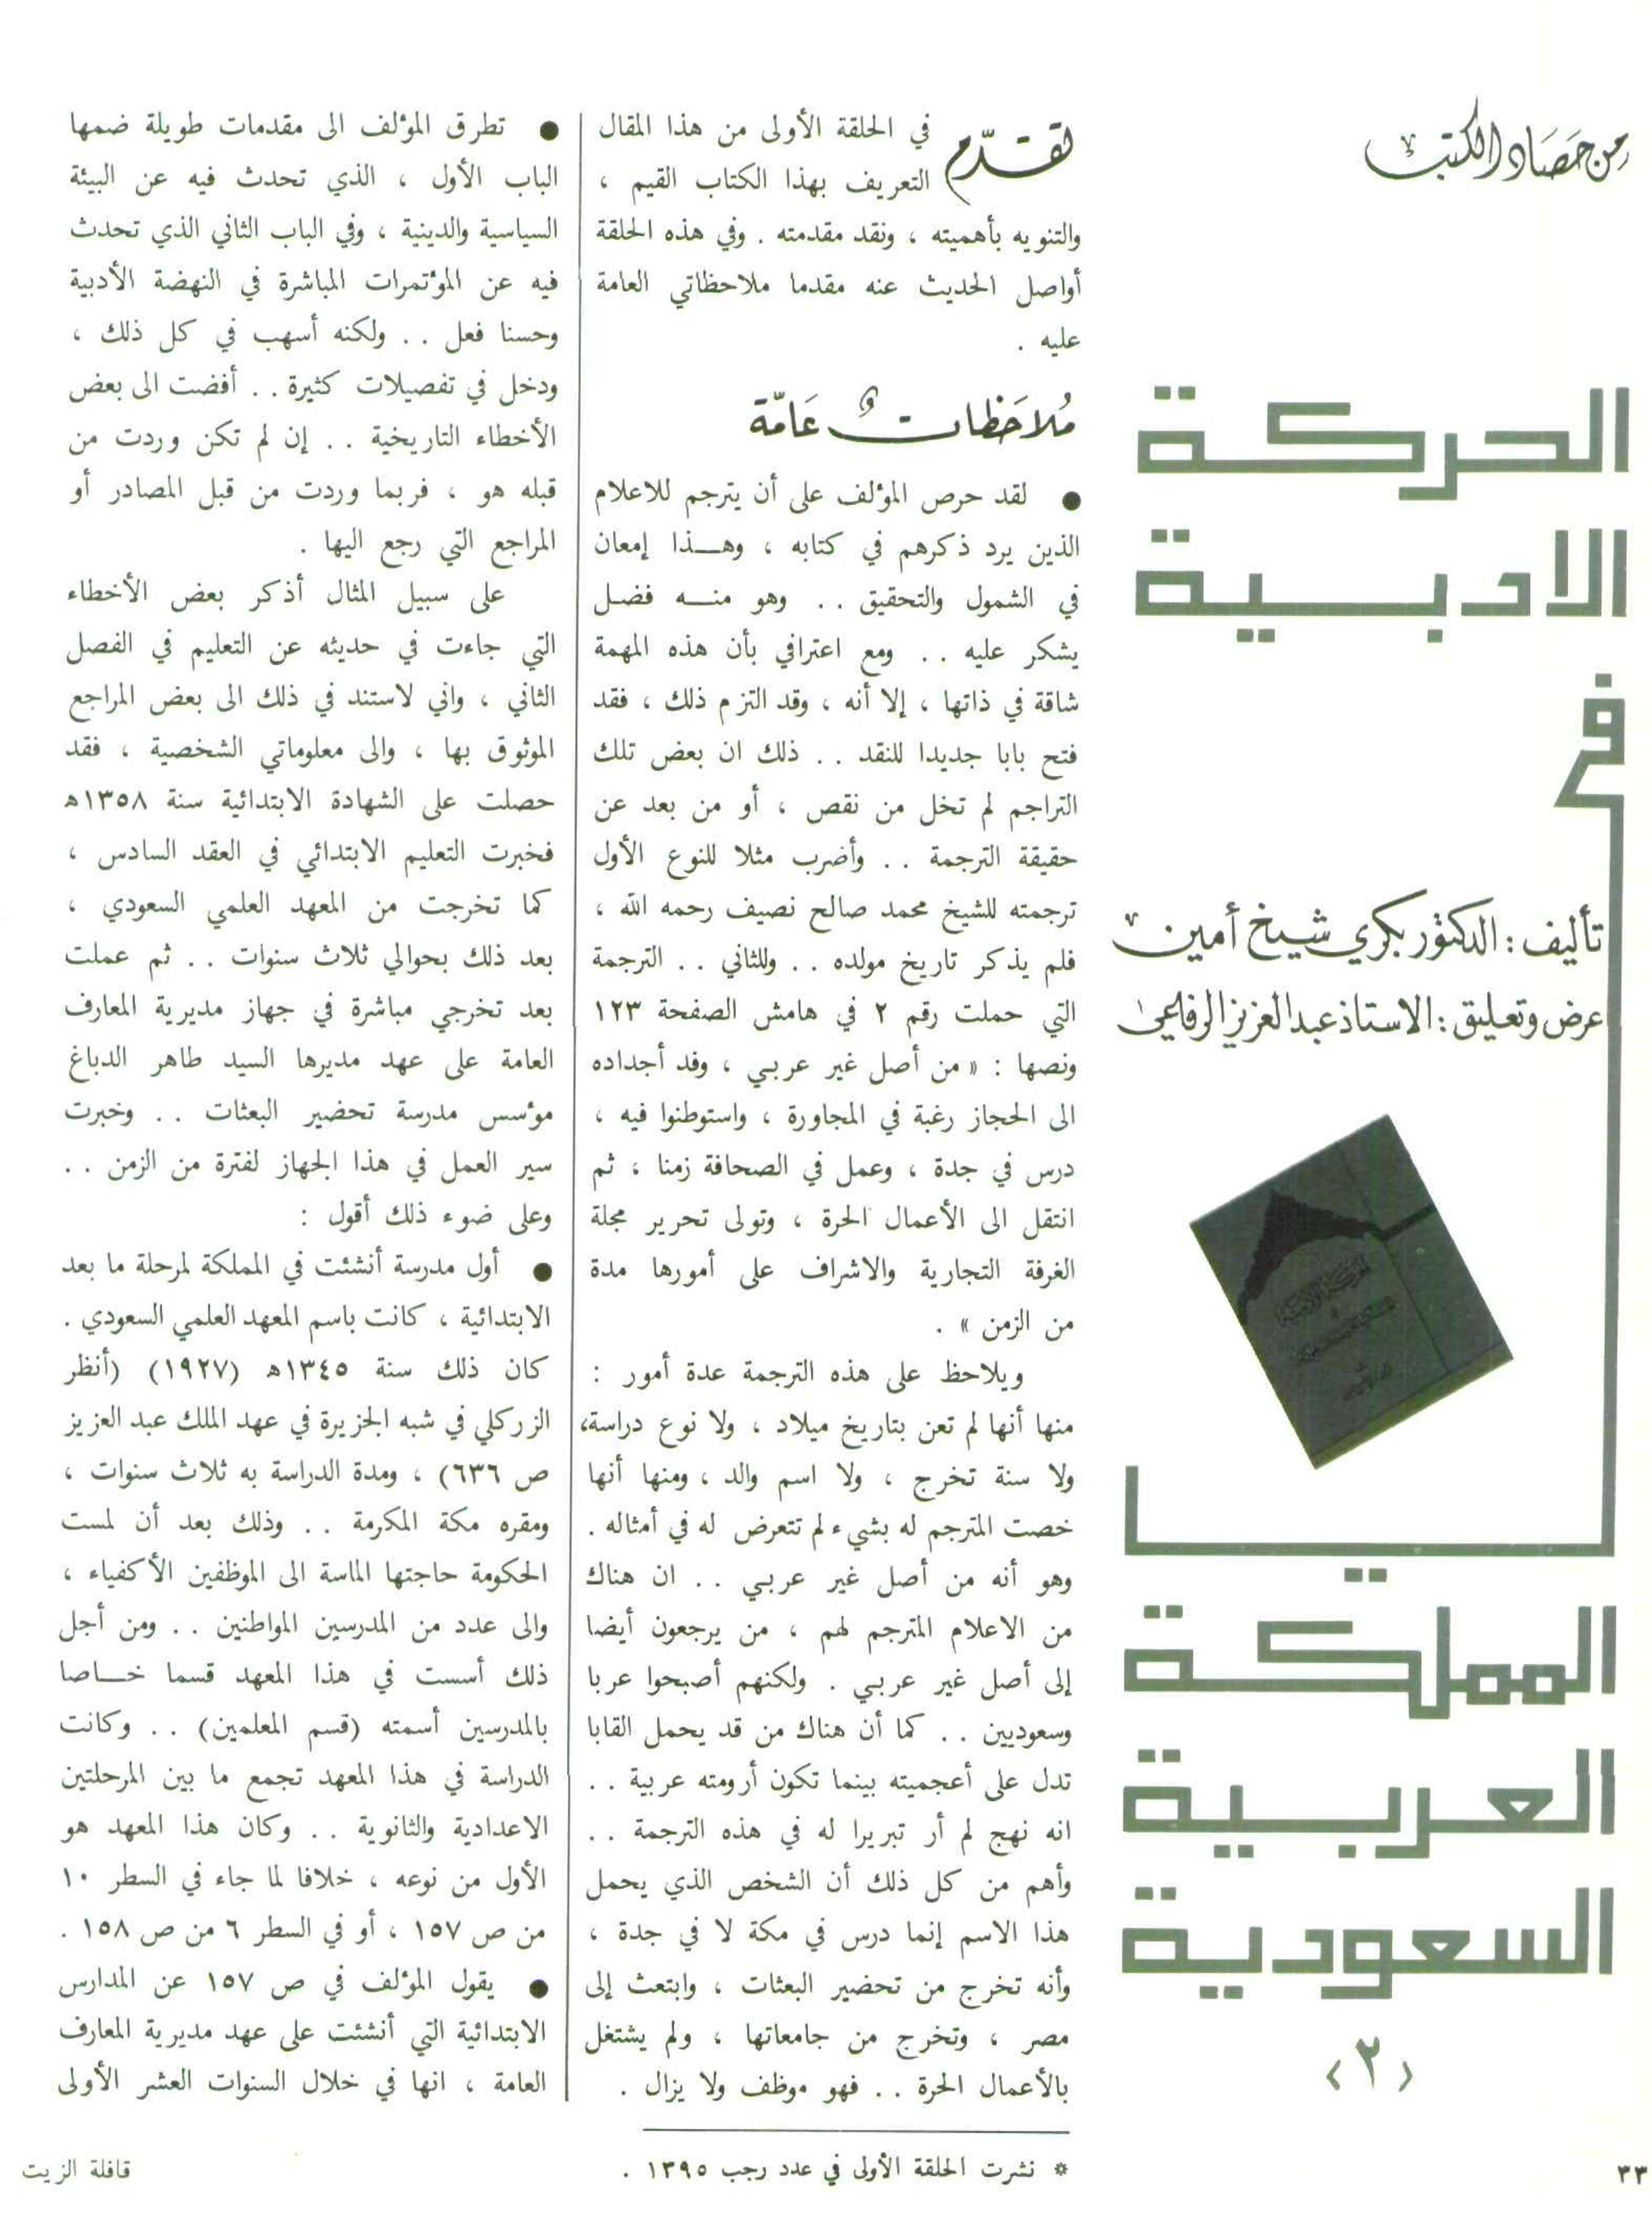 من حصاد الكتب
الحركة
الادبية
في
تأليف : الدكتور بكري شيخ أمين
عرض وتعليق : الاستاذ عبد العزيز الرفاعي
المملكة
العربية
السعودية
〈٢〉
تقدّم في الحلقة الأولى من هذا المقال
التعريف بهذا الكتاب القيم ،
والتنويه بأهميته ، ونقد مقدمته . وفي هذه الحلقة
أواصل الحديث عنه مقدما ملاحظاتي العامة
عليه .
مُلاحَظاتٌ عَامّة
● لقد حرص المؤلف على أن يترجم للاعلام
الذين يرد ذكرهم في كتابه ، وهــذا إمعان
في الشمول والتحقيق . . وهو منــه فضل
يشكر عليه . . ومع اعترافي بأن هذه المهمة
شاقة في ذاتها ، إلا أنه ، وقد التزم ذلك ، فقد
فتح بابا جديدا للنقد . . ذلك ان بعض تلك
التراجم لم تخل من نقص ، أو من بعد عن
حقيقة الترجمة . . وأضرب مثلا للنوع الأول
ترجمته للشيخ محمد صالح نصيف رحمه الله ،
فلم يذكر تاريخ مولده . . وللثاني . . الترجمة
التي حملت رقم ٢ في هامش الصفحة ١٢٣
ونصها : « من أصل غير عربي ، وفد أجداده
الى الحجاز رغبة في المجاورة ، واستوطنوا فيه ،
درس في جدة ، وعمل في الصحافة زمنا ، ثم
انتقل الى الأعمال الحرة ، وتولى تحرير مجلة
الغرفة التجارية والاشراف على أمورها مدة
من الزمن » .
ويلاحظ على هذه الترجمة عدة أمور :
منها أنها لم تعن بتاريخ ميلاد ، ولا نوع دراسة،
ولا سنة تخرج ، ولا اسم والد ، ومنها أنها
خصت المترجم له بشيء لم تتعرض له في أمثاله .
وهو أنه من أصل غير عربي . . ان هناك
من الاعلام المترجم لهم ، من يرجعون أيضا
إلى أصل غير عربي . ولكنهم أصبحوا عربا
وسعوديين . . كما أن هناك من قد يحمل القابا
تدل على أعجميته بينما تكون أرومته عربية . .
انه نهج لم أر تبريرا له في هذه الترجمة . .
وأهم من كل ذلك أن الشخص الذي يحمل
هذا الاسم إنما درس في مكة لا في جدة ،
وأنه تخرج من تحضير البعثات ، وابتعث إلى
مصر ، وتخرج من جامعاتها ، ولم يشتغل
بالأعمال الحرة . . فهو موظف ولا يزال .
* نشرت الحلقة الأولى في عدد رجب ١٣٩٥ .
● تطرق المؤلف الى مقدمات طويلة ضمها
الباب الأول ، الذي تحدث فيه عن البيئة
السياسية والدينية ، وفي الباب الثاني الذي تحدث
فيه عن المؤتمرات المباشرة في النهضة الأدبية
وحسنا فعل . . ولكنه أسهب في كل ذلك ،
ودخل في تفصيلات كثيرة . . أفضت الى بعض
الأخطاء التاريخية . . إن لم تكن وردت من
قبله هو ، فربما وردت من قبل المصادر أو
المراجع التي رجع اليها .
على سبيل المثال أذكر بعض الأخطاء
التي جاءت في حديثه عن التعليم في الفصل
الثاني ، واني لاستند في ذلك الى بعض المراجع
الموثوق بها ، والى معلوماتي الشخصية ، فقد
حصلت على الشهادة الابتدائية سنة ١٣٥٨ه
فخبرت التعليم الابتدائي في العقد السادس ،
كما تخرجت من المعهد العلمي السعودي ،
بعد ذلك بحوالي ثلاث سنوات . . ثم عملت
بعد تخرجي مباشرة في جهاز مديرية المعارف
العامة على عهد مديرها السيد طاهر الدباغ
مؤسس مدرسة تحضير البعثات . . وخبرت
سير العمل في هذا الجهاز لفترة من الزمن . .
وعلى ضوء ذلك أقول :
● أول مدرسة أنشئت في المملكة لمرحلة ما بعد
الابتدائية ، كانت باسم المعهد العلمي السعودي .
كان ذلك سنة ١٣٤٥ه (١٩٢٧) (أنظر
الزركلي في شبه الجزيرة في عهد الملك عبد العزيز
ص ٦٣٦) ، ومدة الدراسة به ثلاث سنوات ،
ومقره مكة المكرمة . . وذلك بعد أن لمست
الحكومة حاجتها الماسة الى الموظفين الأكفياء ،
والى عدد من المدرسين المواطنين . . ومن أجل
ذلك أسست في هذا المعهد قسما خــاصا
بالمدرسين أسمته (قسم المعلمين) . . وكانت
الدراسة في هذا المعهد تجمع ما بين المرحلتين
الاعدادية والثانوية . . وكان هذا المعهد هو
الأول من نوعه ، خلافا لما جاء في السطر ١٠
من ص ١٥٧ ، أو في السطر ٦ من ص ١٥٨ .
● يقول المؤلف في ص ١٥٧ عن المدارس
الابتدائية التي أنشئت على عهد مديرية المعارف
العامة ، انها في خلال السنوات العشر الأولى
٣٣
قافلة الزيت